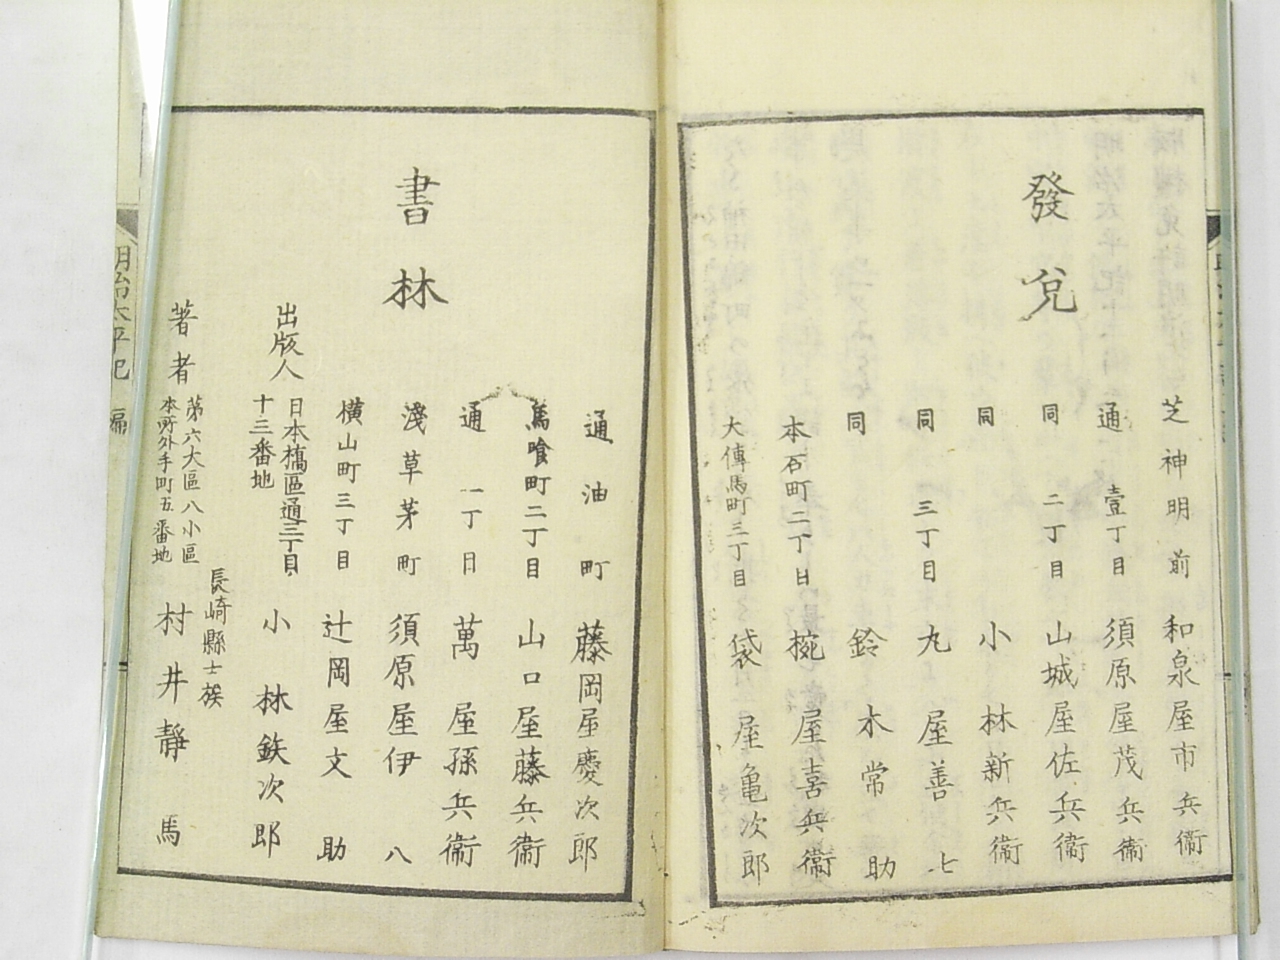 發兌
芝神明前 和泉屋市兵衞
通壹丁目 須原屋茂兵衞
同二丁目 山城屋佐兵衞
同 小林新兵衞
同三丁目 丸屋善七
同 鈴木常助
本石町二丁目 椀屋喜兵衞
大傳馬町三丁目 袋屋亀次郎
書林
通油町 藤岡屋慶次郎
馬喰町二丁目 山口屋藤兵衞
通一丁目 萬屋孫兵衞
淺草茅町 須原屋伊八
横山町三丁目 辻岡屋文助
出版人
日本橋區通三丁目
十三番地
小林鉄次郎
著者
第六大區八小區
本所外手町五番地
長崎縣士族
村井靜馬
明治太平記 編